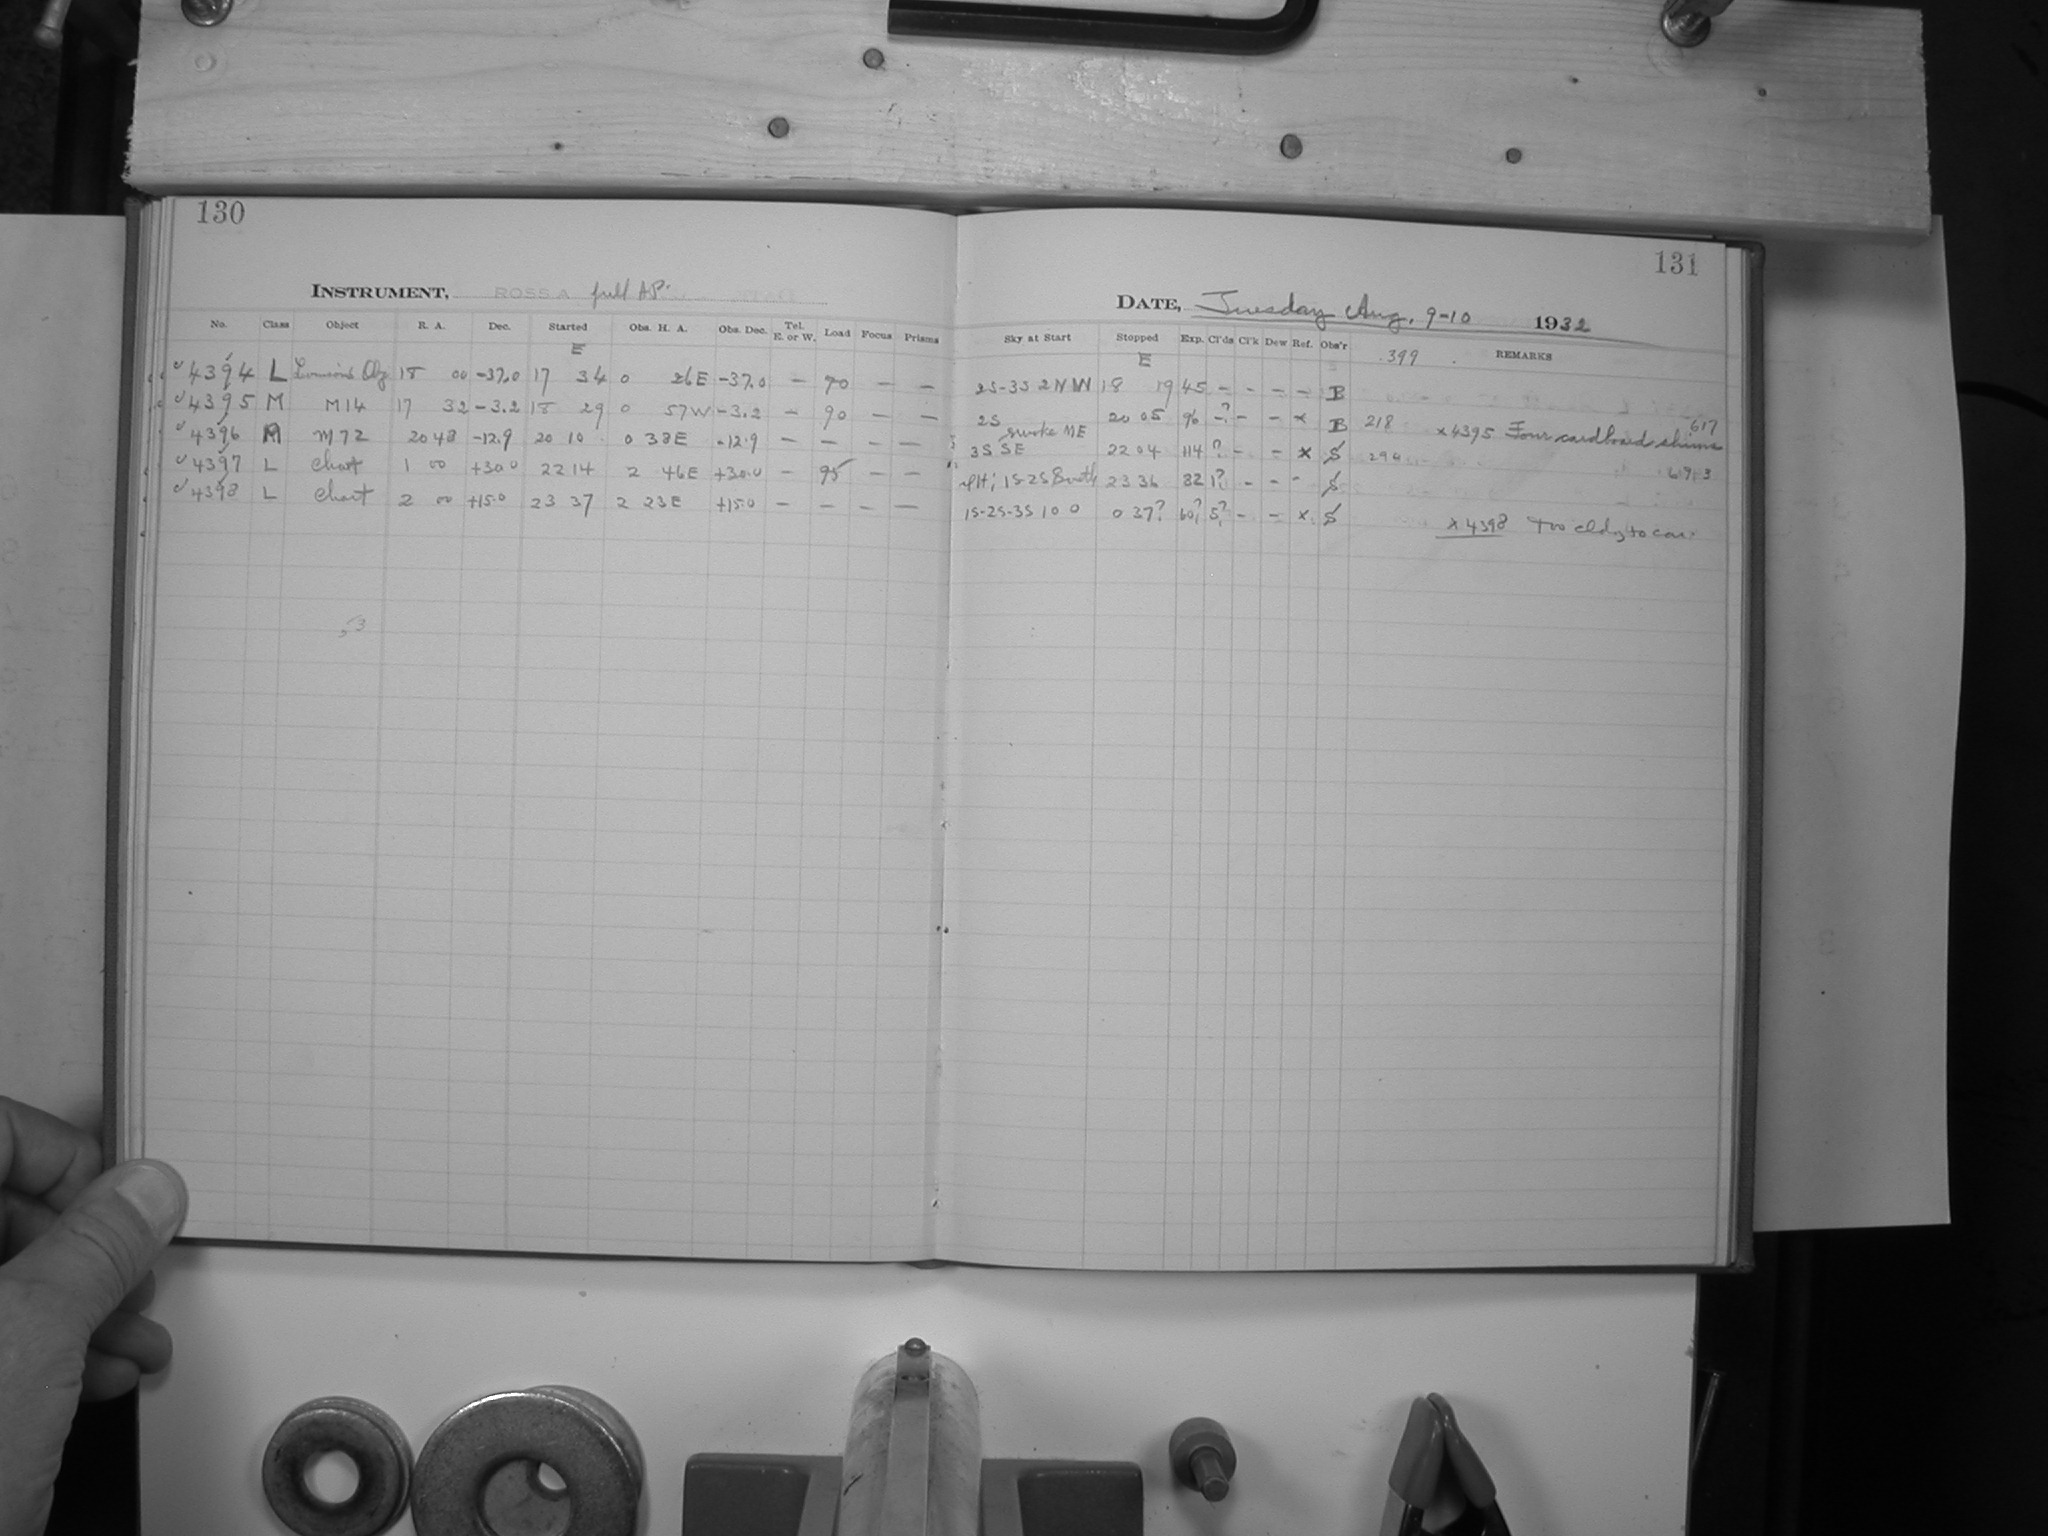 130
INSTRUMENT, ROSS A full AP.
No. Class Object R. A. Dec. Started Obs. H. A. Obs. Dec. Tel. E. or W. Load Focus Prisms
E
4394 L 18 00 -37.0 17 34 0 26E -37.0 - 90 - -
4395 M M14 17 32 -3.2 18 29 0 57W -3.2 - 90 - -
4396 M M72 20 48 -12.9 20 10 0 38E -12.9 - - - -
4397 L Chart 1 00 +30.0 22 14 2 46E +30.0 - 95 - -
4398 L Chart 2 00 +15.0 23 37 2 23E +15.0 - - - -
53
131
DATE, Tuesday Aug. 9-10 1932
Sky at Start Stopped Exp. Cl'ds Cl'k Dew Ref. Obs'r REMARKS
E 399
2S-3S 2NW 18 19 45 - - - - B
2S 20 05 96 -? - - x B 218 617
smoke NE x4395 Four cardboard shims
3S SE 22 04 114 ? - - x S 290
1S-2S 23 36 82 1? - - - S 619.3
1S-2S-3S 100 0 37? 60? 5? - - x S
x4398 Too cldy to